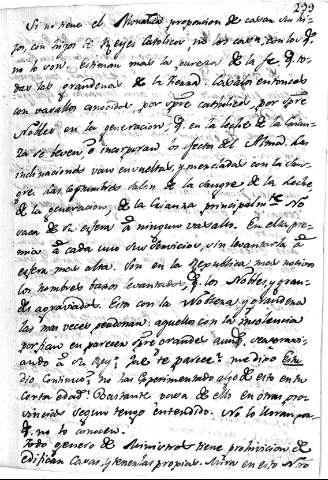 299
Si no tiene el Monarca proporcion de casar sus hi-
jos, con hijos de Reyes Catolicos, no los casa con los q.
no lo son. estiman mas la pureza de la fe, q. to-
das las grandezas de la tierra. Casalos entonces
con vasallos conocidos, por spre catholicos, por spre
Nobles en la generacion, q. en la leche de la crian-
za se beven o incorporan los afectos del Alma. Las
inclinaciones van embueltas, y mezcladas con la san-
gre. las costumbres salen de la sangre, de la leche,
de la generacion, de la crianza principalm.te No
sacan de su esfera à ninguno vasallo. En ella pre-
mia à cada uno sus servicios, sin levantarlo à
esfera mas alta. Son en la Republica mas nocivos
los hombres baxos levantados, q. los Nobles, y gran-
des agraviados. Estos con la Nobleza, y grandeza
las mas veces perdonan: aquellos con la insolencia
porfian en parecer spre grandes aunq. sea agravi-
ando à su Rey. Que te parece? me dixo
Estudio Continuo? no has experimentado algo de esto en tu
corta edad? Bastante parte de ello en otras pro-
vincias seguro tengo entendido. No lo lloran por-
q. no lo conocen.
Todo genero de Ministros tiene prohivicion de
edificar Casas, y tenerlas propias. Mira en esto Nro